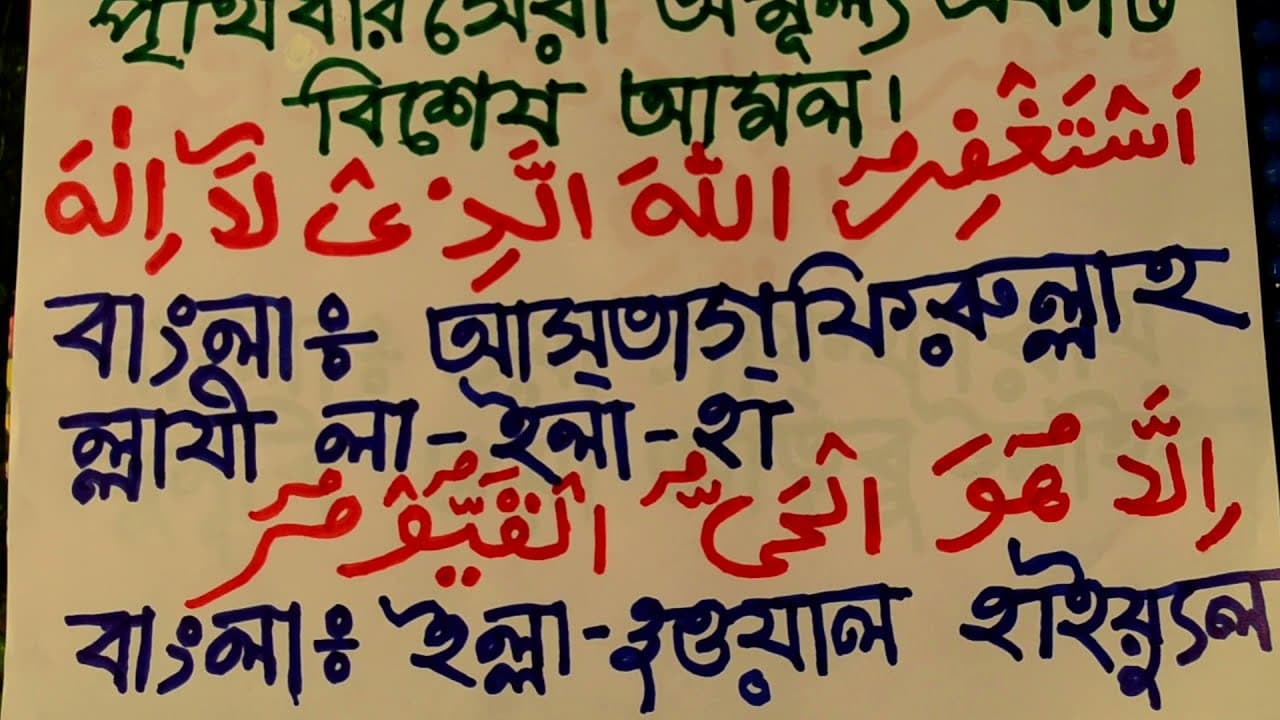 পৃথিবীর সেরা অমূল্য একটি
বিশেষ আমল।
اَسْتَغْفِرُ اللّٰهَ الَّذِىْ لَآ اِلٰهَ
বাংলাঃ আস্তাগ্ফিরুল্লাহ
ল্লাযী লা-ইলা-হা
اِلَّا هُوَ الْحَىُّ الْقَيُّوْمُ
বাংলাঃ ইল্লা-হুওয়াল হাইয়্যুল